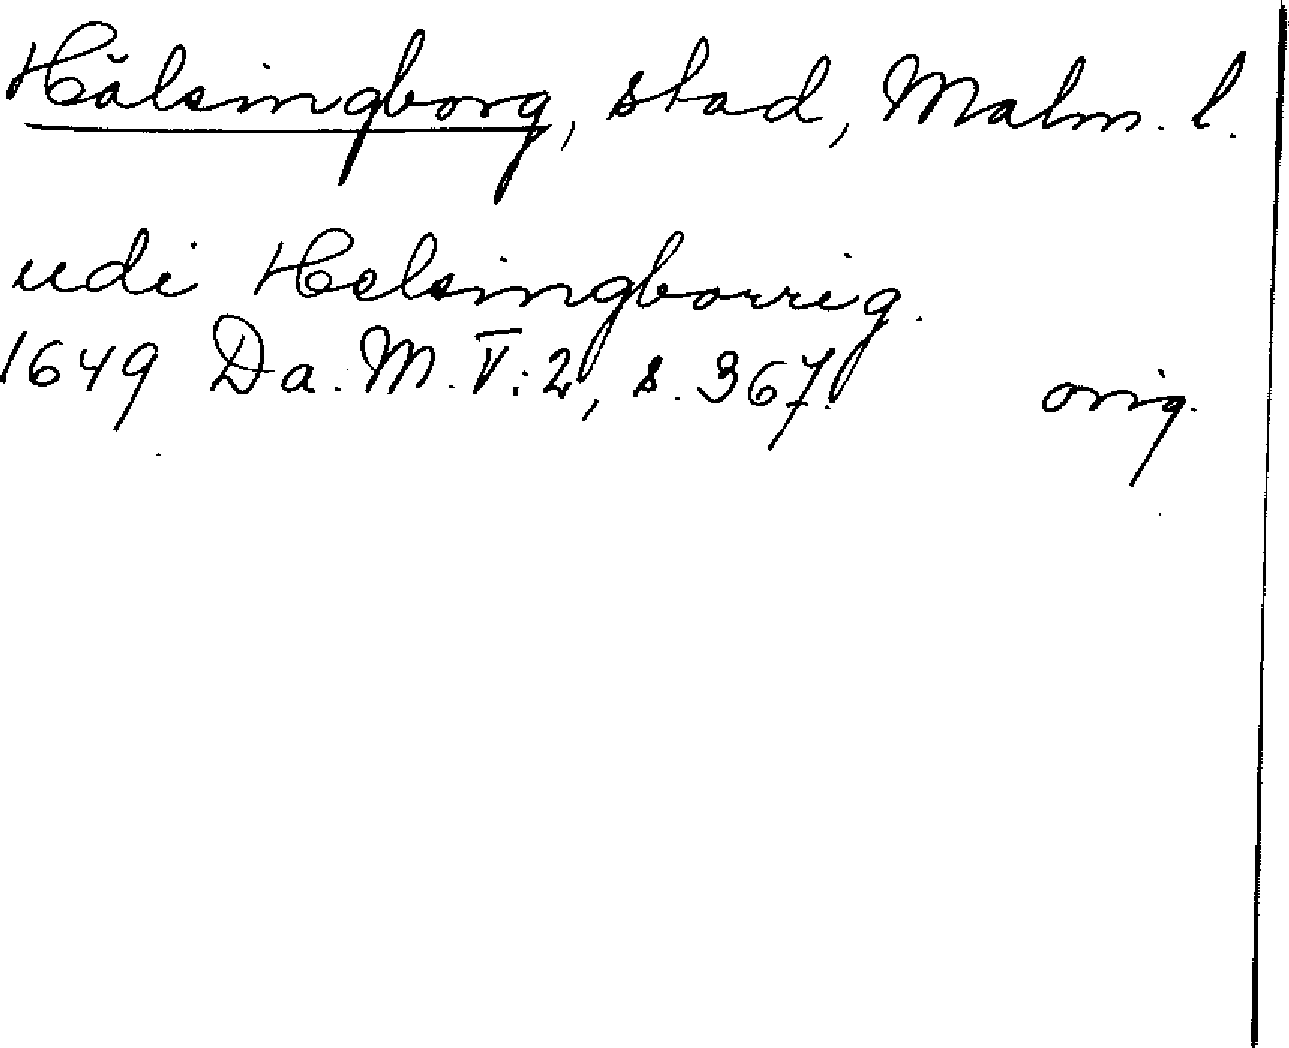 Hälsingborg, stad, Malm. l.
udi Helsingborrig.
1649 Da. M. V: 2, s. 367. orig.